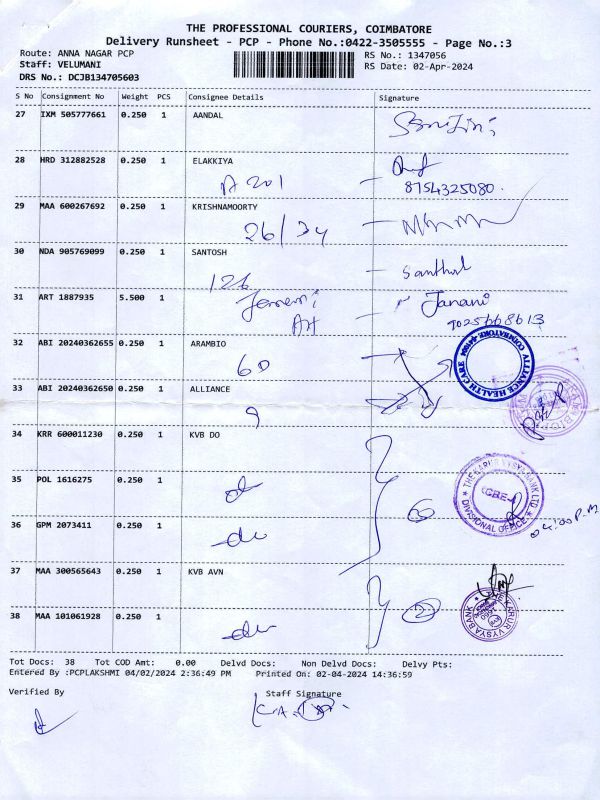 THE PROFESSIONAL COURIERS, COIMBATORE
Delivery Runsheet - PCP - Phone No.:0422-3505555 - Page No.:3
Route: ANNA NAGAR PCP RS No.: 1347056
Staff: VELUMANI RS Date: 02-Apr-2024
DRS No.: DCJB134705603
S No Consignment No Weight PCS Consignee Details Signature
27 IXM 505777661 0.250 1 AANDAL
28 HRD 312882528 0.250 1 ELAKKIYA
A 201 8754325080.
29 MAA 600267692 0.250 1 KRISHNAMOORTY
26/34
30 NDA 905769099 0.250 1 SANTOSH
126
31 ART 1887935 5.500 1 Janani
Art
32 ABI 20240362655 0.250 1 ARAMBIO
60
ALLIANCE HEALTH CARE COIMBATORE
33 ABI 20240362650 0.250 1 ALLIANCE
9
34 KRR 600011230 0.250 1 KVB DO
35 POL 1616275 0.250 1
THE KARUR VYSYA BANK LTD.
CBE-
DIVISIONAL OFFICE
36 GPM 2073411 0.250 1
04:30 P.M
37 MAA 300565643 0.250 1 KVB AVN
KARUR VYSYA BANK
38 MAA 101061928 0.250 1
Tot Docs: 38 Tot COD Amt: 0.00 Delvd Docs: Non Delvd Docs: Delvy Pts:
Entered By :PCPLAKSHMI 04/02/2024 2:36:49 PM Printed On: 02-04-2024 14:36:59
Verified By Staff Signature